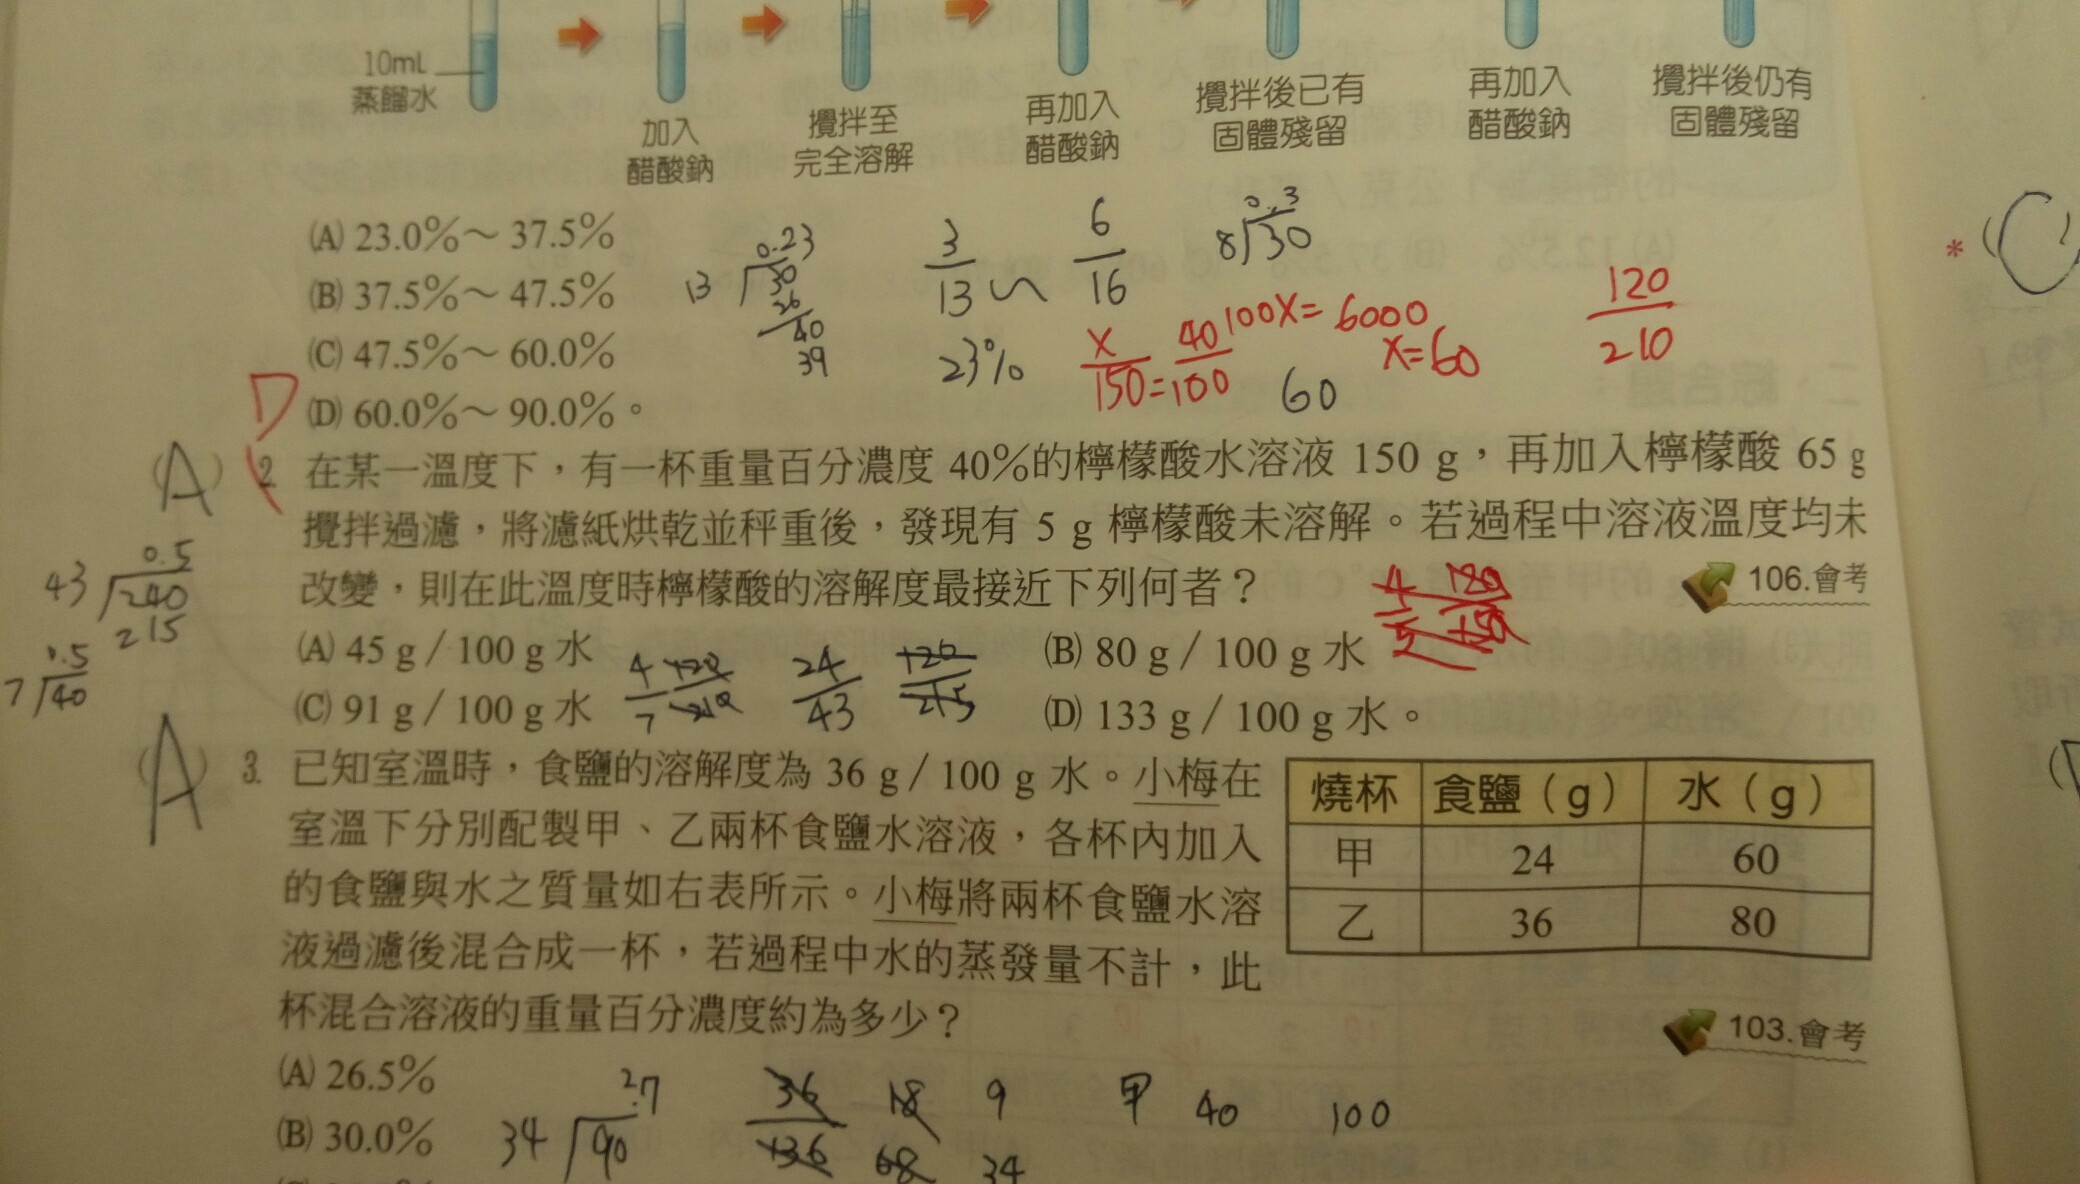 10mL
蒸餾水
加入
醋酸鈉
攪拌至
完全溶解
再加入
醋酸鈉
攪拌後已有
固體殘留
再加入
醋酸鈉
攪拌後仍有
固體殘留
(A) 23.0%～37.5%
(B) 37.5%～47.5%
(C) 47.5%～60.0%
(D) 60.0%～90.0%。
0.23
13
30
26
40
39
3
13
6
16
23%
0.3
8
30
x/150=40/100
100x=6000
x=60
60
120
210
*
(C)
D
(A) 2. 在某一溫度下，有一杯重量百分濃度 40%的檸檬酸水溶液 150 g，再加入檸檬酸 65 g
攪拌過濾，將濾紙烘乾並秤重後，發現有 5 g 檸檬酸未溶解。若過程中溶液溫度均未
改變，則在此溫度時檸檬酸的溶解度最接近下列何者？ 106.會考
(A) 45 g／100 g 水 (B) 80 g／100 g 水
(C) 91 g／100 g 水 (D) 133 g／100 g 水。
0.5
43
240
215
7
40
4
7
24
43
(A) 3. 已知室溫時，食鹽的溶解度為 36 g／100 g 水。小梅在
室溫下分別配製甲、乙兩杯食鹽水溶液，各杯內加入
的食鹽與水之質量如右表所示。小梅將兩杯食鹽水溶
液過濾後混合成一杯，若過程中水的蒸發量不計，此
杯混合溶液的重量百分濃度約為多少？ 103.會考
燒杯 食鹽（g） 水（g）
甲 24 60
乙 36 80
(A) 26.5%
(B) 30.0%
27
34
90
36
136
18
68
9
34
甲 40 100